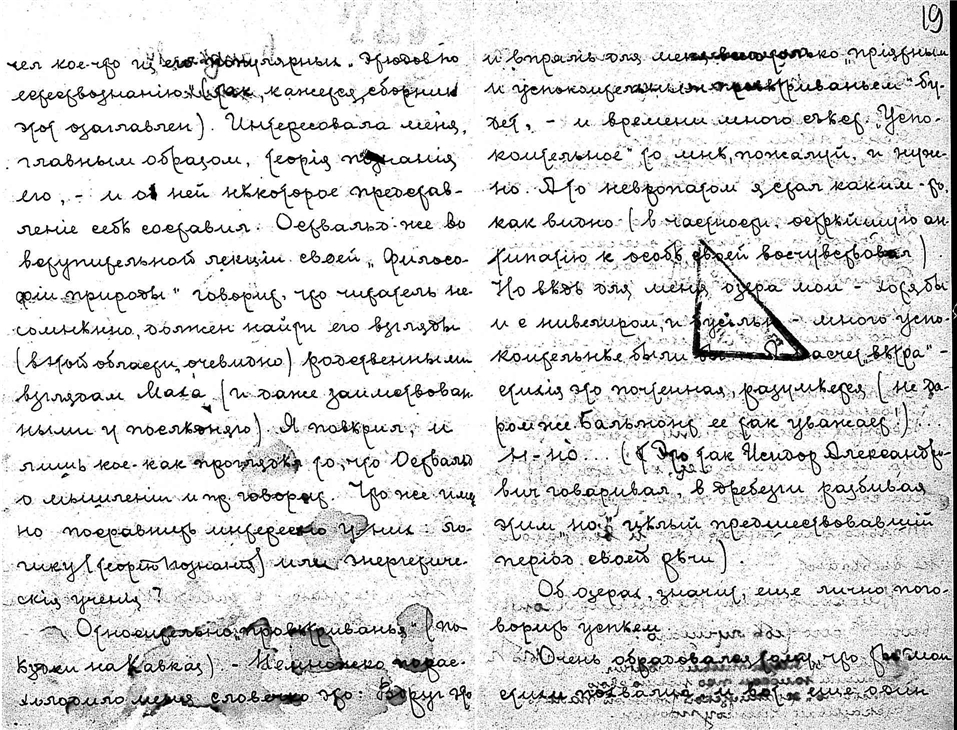 19
чел кое-что из его популярных
естествознанію" (так, кажется, сборник
этот озаглавлен). Интересовала меня,
главным образом, теорія познанія
его, – и о ней нѣкоторое представ-
леніе себѣ составил. Оствальд же во
вступительной лекціи своей „Филосо-
фіи природы" говорит, что читатель не-
сомнѣнно, должен найти его взгляды
(в этой области, очевидно) родственными
взглядам Маха (и даже заимствован-
ными у послѣдняго). Я повѣрил, и
лишь кое-как проглядѣл то, что Оствальд
о мышленіи и пр. говорит. Что же имен
но посравнить интересно у них: ло-
гику [теорію познанія] или энергетиче-
скія ученія?
Относительно „провѣтриванья" (по-
ѣздки на Кавказ). – Немножко порас-
холодило меня словечко это: Вдруг
и впрямь для меня только „пріятным
и успокоительным провѣтриваньем" бу-
дет, – и времени много съѣст. „Успо-
коительное" то мнѣ, пожалуй, и нуж-
но. А то невропатом я стал каким-то,
как видно (в частности, острѣйшую ан-
типатію к особѣ своей восчувствовал).
Но вѣдь для меня озера мои – хотя бы
и с нивелиром, и – много успо-
коительнѣе были бы „вѣтра" –
стихія это почтенная, разумѣется (не да-
ром же Бальмонт ее так уважает!)...
н-но... (Это так Исидор Александро-
вич говаривал, в дребезги разбивая
этим „но" цѣлый предшествовавшій
період своей рѣчи).
Об озерах, значит, еще лично пого-
ворить успѣем.
Очень обрадовался тому, что мои
стихи похвалил, и вот еще один